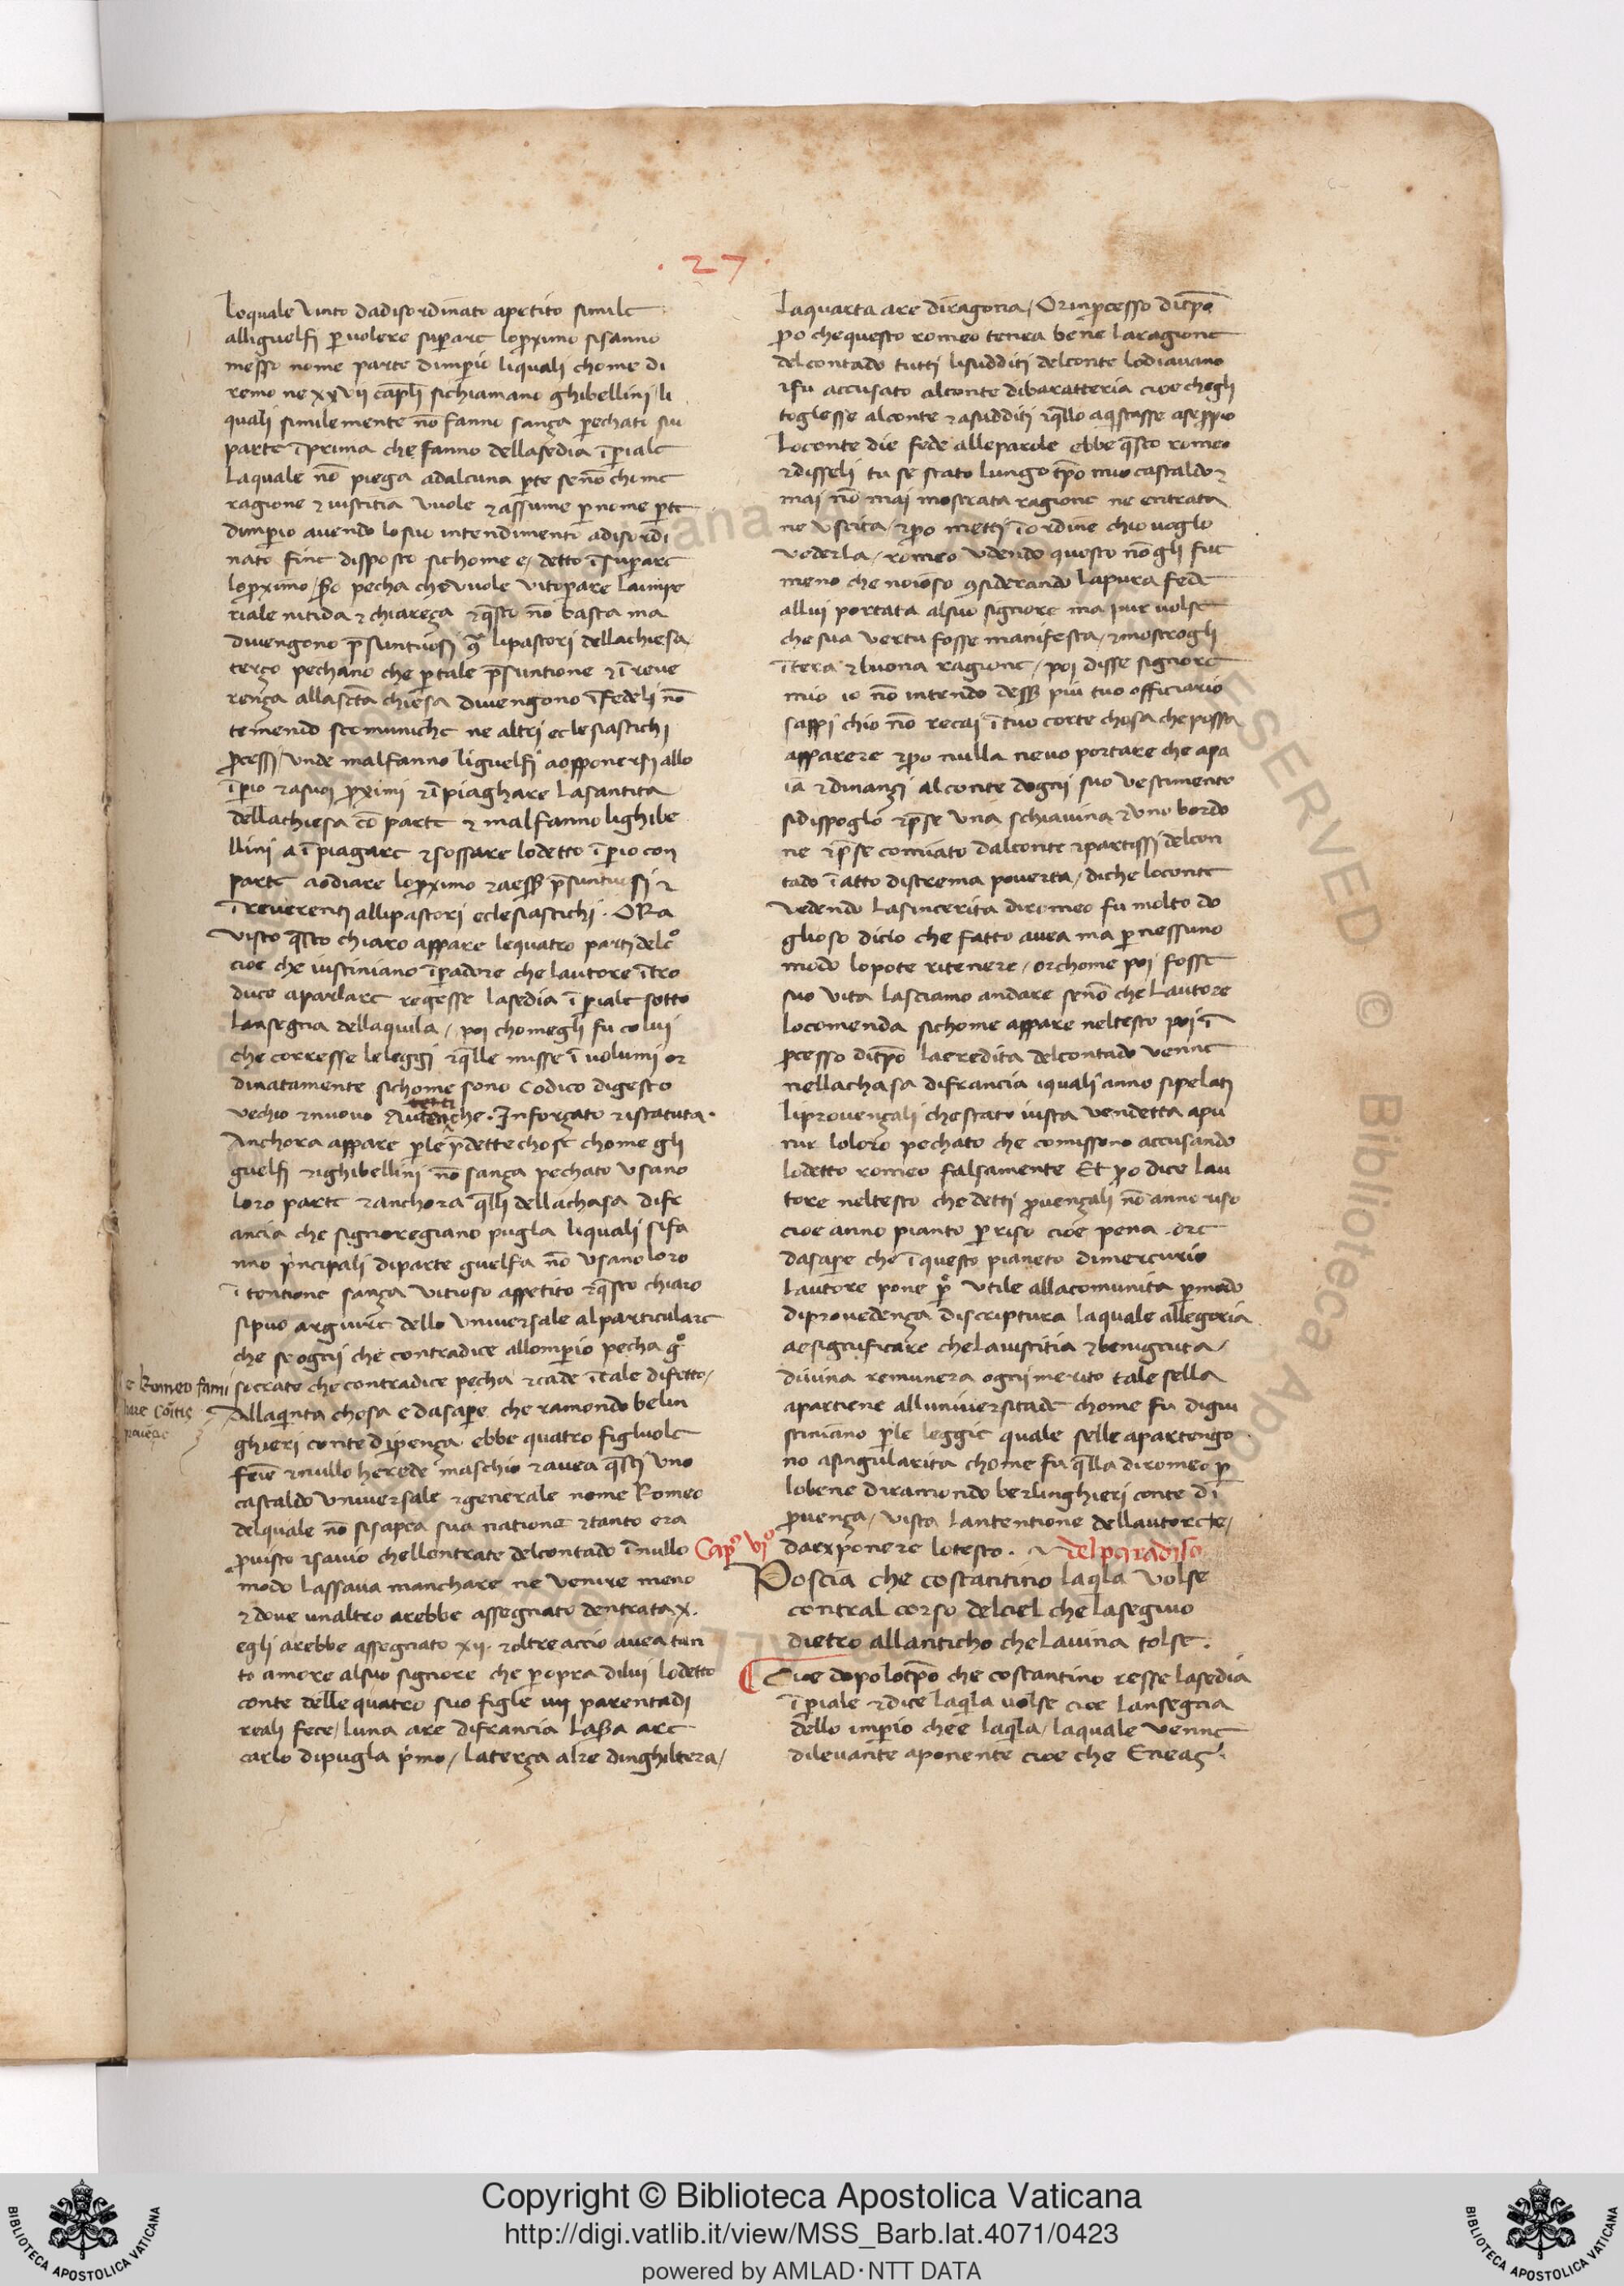 . 27 .
loquale vinto dadisordinato apetito simile
alliguelfi p̱ volere sup̱are lop̱ximo sisanno
messo nome parte dimp̱io liquali chome di
remo ne xxvii cap̄li sichiamano ghibellini / li
quali similemente nō fanno sança pechati sui
parte ī prima che fanno dellasedia īp̱iale
Laquale nō piega adalcuna p̱te senō chi me
ragione ⁊ iustitia vuole ⁊ assume p̱ nome p̱te
dimp̱io avendo losuo intendimento adisordi
nato fine disposto sichome e / detto ī sup̱are
lop̱ximo / p̱o pecha che vuole vitop̱are laimpe
riale nitida ⁊ chiareça ⁊ q̄sto nō basta ma
divengono p̄suntuosi  lipastori dellachiesa
terço pechano che p̱ tale p̄suntione ⁊ ī reve
rença allasc̄ta chiesa divengono īfedeli nō
temendo scomuniche ne altri eclesiastichi
p̱cessi / unde malfanno liguelfi aopponersi allo
īp̱io ⁊ asuoi p̱ximi ⁊ īpiaghare lasantita
dellachiesa cō parte ⁊ malfanno lighibe
llini a īpiagare ⁊ fossare lodetto īp̱io con
parte aodiare lop̱ximo ⁊ aess̱ p̄suntuosi ⁊
īreverenti allipastori eclesiastichi . ORa
visto q̄sto chiaro appare lequatro parti delc̊
cioe che iustiniano īp̱adore che lautore ītro
duce aparlare regesse lasedia īp̱iale sotto
lansegna dellaquila / poi chomegli fu colui
che corresse leleggi ⁊ q̄lle misse ī volumi or
dinatamente sichome sono Codico digesto
vechio ⁊ nuovo Autenche . Inforçato ⁊ istatuta .
Anchora appare p̱le p̄dette chose chome gli
guelfi ⁊ ighibellini nō sança pechato usano
loro parte ⁊ anchora q̄lli dellachasa difr
ancia che signoregiano pugla liquali sifa
nno p̄ncipali diparte guelfa nō usano loro
ītentione sança vitioso appetito ⁊ q̄sto chiaro
sipuo arguire dello universale alparticulare
che se ogni che contradice allomp̱io pecha g̊
socrate che contradice pecha ⁊ cade ītale difetto /
Allaq̄inta chosa e dasap̱e che ramondo belin
ghieri conte dip̱vença ebbe quatro figluole
feīe ⁊ nullo herede maschio ⁊ avea q̄sti uno
castaldo universale ⁊ generale nome Romeo
delquale nō sisapea sua natione ⁊ tanto era
p̱visto ⁊ savio chellentrate delcontado īnullo
modo lassava manchare ne venire meno
⁊ dove unaltro arebbe assegnato dentrata x .
egli arebbe assegnato xii . ⁊ oltre accio avea tan
to amore alsuo signore che p̱ opra dilui lodetto
conte delle quatro suo figle iiii parentadi
reali fece / luna a re difrancia lalt̄a a re
carlo dipugla p̄mo / laterça alre dinghiltera /
Romeo fami
liare Cōitis
laquarta are diragona / Or inp̱cesso dit̄po
p̱o chequesto romeo tenea bene laragione
delcontado tutti lisudditi delconte lodiavano
⁊ fu accusato alconte dibaratteria cioe chegli
toglesse alconte ⁊ asudditi ⁊ q̄llo aq̄istasse asep̱p̱io
Loconte die fede alleparole ebbe q̄sto romeo
⁊ disseli tu se stato lungo t̄po mio castaldo ⁊
mai nō mai mostrata ragione ne entrata
ne uscita / ⁊ p̱o metti ī ordine chio voglo
vederla / romeo udendo questo nōgli fue
meno che noioso ꝯsiderando lapura fede
allui portata alsuo signore ma pur volse
che sua vertu fosse manifesta / ⁊ mostrogli
ītera ⁊ buona ragione / poi disse signore
mio io nō intendo dess̱ piu tuo officiario
sappi chio nō recai ī tuo corte chosa che possa
apparere ⁊ p̱o nulla nevo portare che apa
ia ⁊ dinançi alconte dogni suo vestimento
sidispoglo ⁊ p̄se una schiavina ⁊ uno bordo
ne ⁊ p̄se comiato dalconte ⁊ partissi delcon
tado ī atto distrema poverta / diche loconte
vedendo lasincerita diromeo fu molto do
glioso dicio che fatto avea ma p̱ nessuno
modo lopote ritenere / or chome poi fosse
suo vita lasciamo andare senō che lautore
locomenda sichome appare neltesto poi ī
p̱cesso dit̄po laeredita delcontado venne
nellachasa difrancia iquali anno sipelati
liprovençali chestato iusta vendetta apu
nir loloro pechato che comissono accusando
lodetto romeo falsamente Et p̱o dice lau
tore neltesto che detti p̱vençali nō anno riso
cioe anno pianto p̱ riso cioe pena . ore
dasap̱e che ī questo pianeto dimercurio
lautore pone p̱̊ utile allacomunita p̱ modo
diprovedença discriptura laquale allegoria
aesignificare chelaiustitia ⁊ benignita /
divina remunera ogni merito tale sella
apartiene alluniversitade chome fu digiu
stiniano p̱le leggie quale selle apartengo
no asingularita chome fu q̄lla diromeo p̱
lobene diramondo berlinghieri conte di
p̱vença / vista lantentione dellautore te /
daexponere lotesto .
Cap̊ vi̊
delparadiso
Poscia che costantino laq̄la volse
contral corso delciel che lasegiuo
dietro allanticho che lavina tolse .
Cioe dopo lot̄po che costantino resse lasedia
īp̱iale ⁊ dice laq̄la volse cioe lansegna
dello imp̱io che e laq̄la / laquale venne
dilevante aponente cioe che Eneas .
Copyright © Biblioteca Apostolica Vaticana
http://digi.vatlib.it/view/MSS_Barb.lat.4071/0423
powered by AMLAD·NTT DATA
BIBLIOTECA APOSTOLICA VATICANA
BIBLIOTECA APOSTOLICA VATICANA